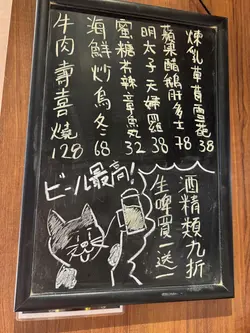 煉乳草莓雪葩 38
蘋果醋鵝肝多士 78
明太子天婦羅 38
蜜糖芥辣章魚丸 32
海鮮炒烏冬 68
牛肉壽喜燒 128
酒精類九折
生啤買一送一
ビール最高!